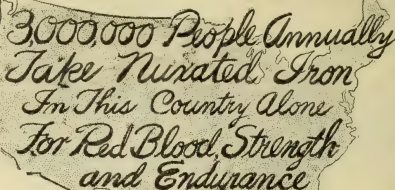 3,000,000 People Annually
Take Nuxated Iron
In This Country Alone
For Red Blood, Strength
and Endurance